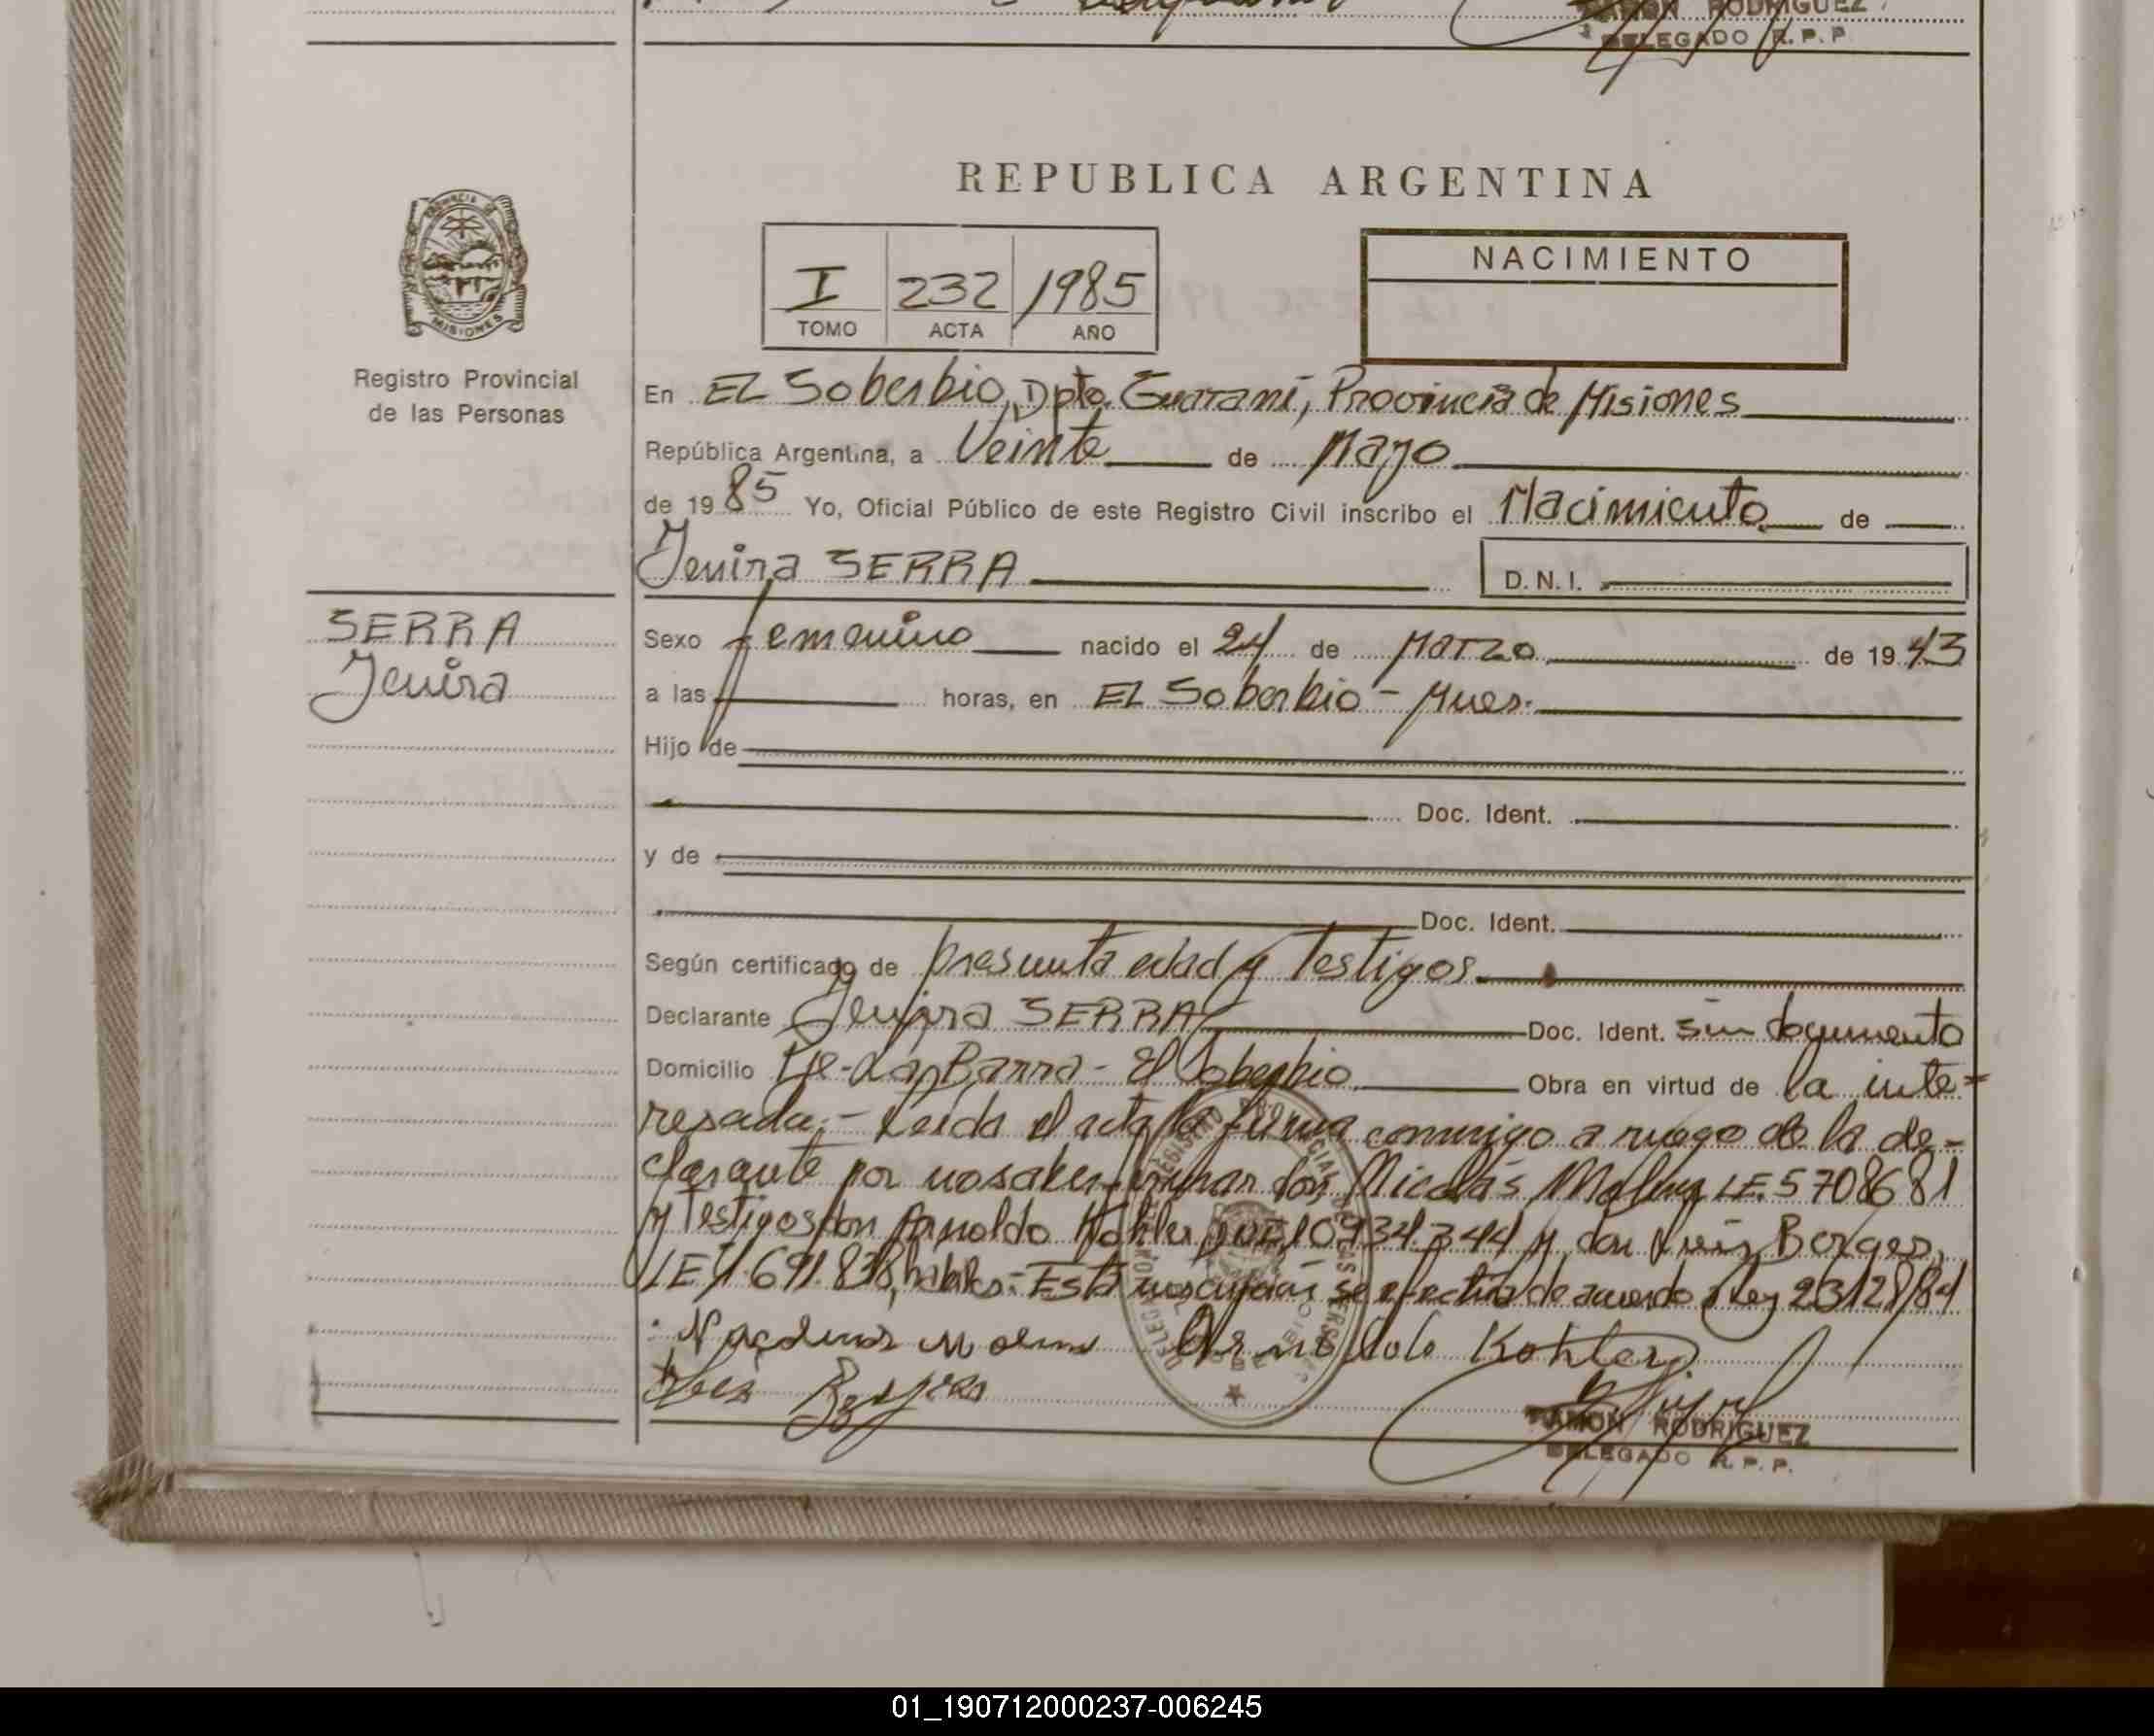 RAMON RODRIGUEZ
DELEGADO R.P.P
REPUBLICA ARGENTINA
I 232 1985
TOMO ACTA AÑO
NACIMIENTO
MISIONES
Registro Provincial
de las Personas
SERRA
Jenira
En EL Soberbio, Dpto. Guaraní, Provincia de Misiones
República Argentina, a Veinte de Mayo
de 1985 Yo, Oficial Público de este Registro Civil inscribo el Nacimiento de
Jenira SERRA D.N.I.
Sexo femenino nacido el 24 de Marzo de 1943
a las horas, en EL Soberbio - Mnes.
Hijo de
Doc. Ident.
y de
Doc. Ident.
Según certificado de presunta edad y Testigos.
Declarante Jenira SERRA Doc. Ident. sin documento
Domicilio Pje. Las Barra - El Soberbio Obra en virtud de la inte=
resada.- Leída el acta la firma conmigo a ruego de la de=
clarante por no saber firmar don Nicolás LE. 5708681
y Testigos don Arnoldo Kohler 10934344 y don Luis Borges,
LE 691.838, habiles.- Esta inscripción se efectúa de acuerdo a Ley 23128/84
Arnoldo Kohler
Luis Borges
RAMON RODRIGUEZ
DELEGADO R. P. P.
01_190712000237-006245